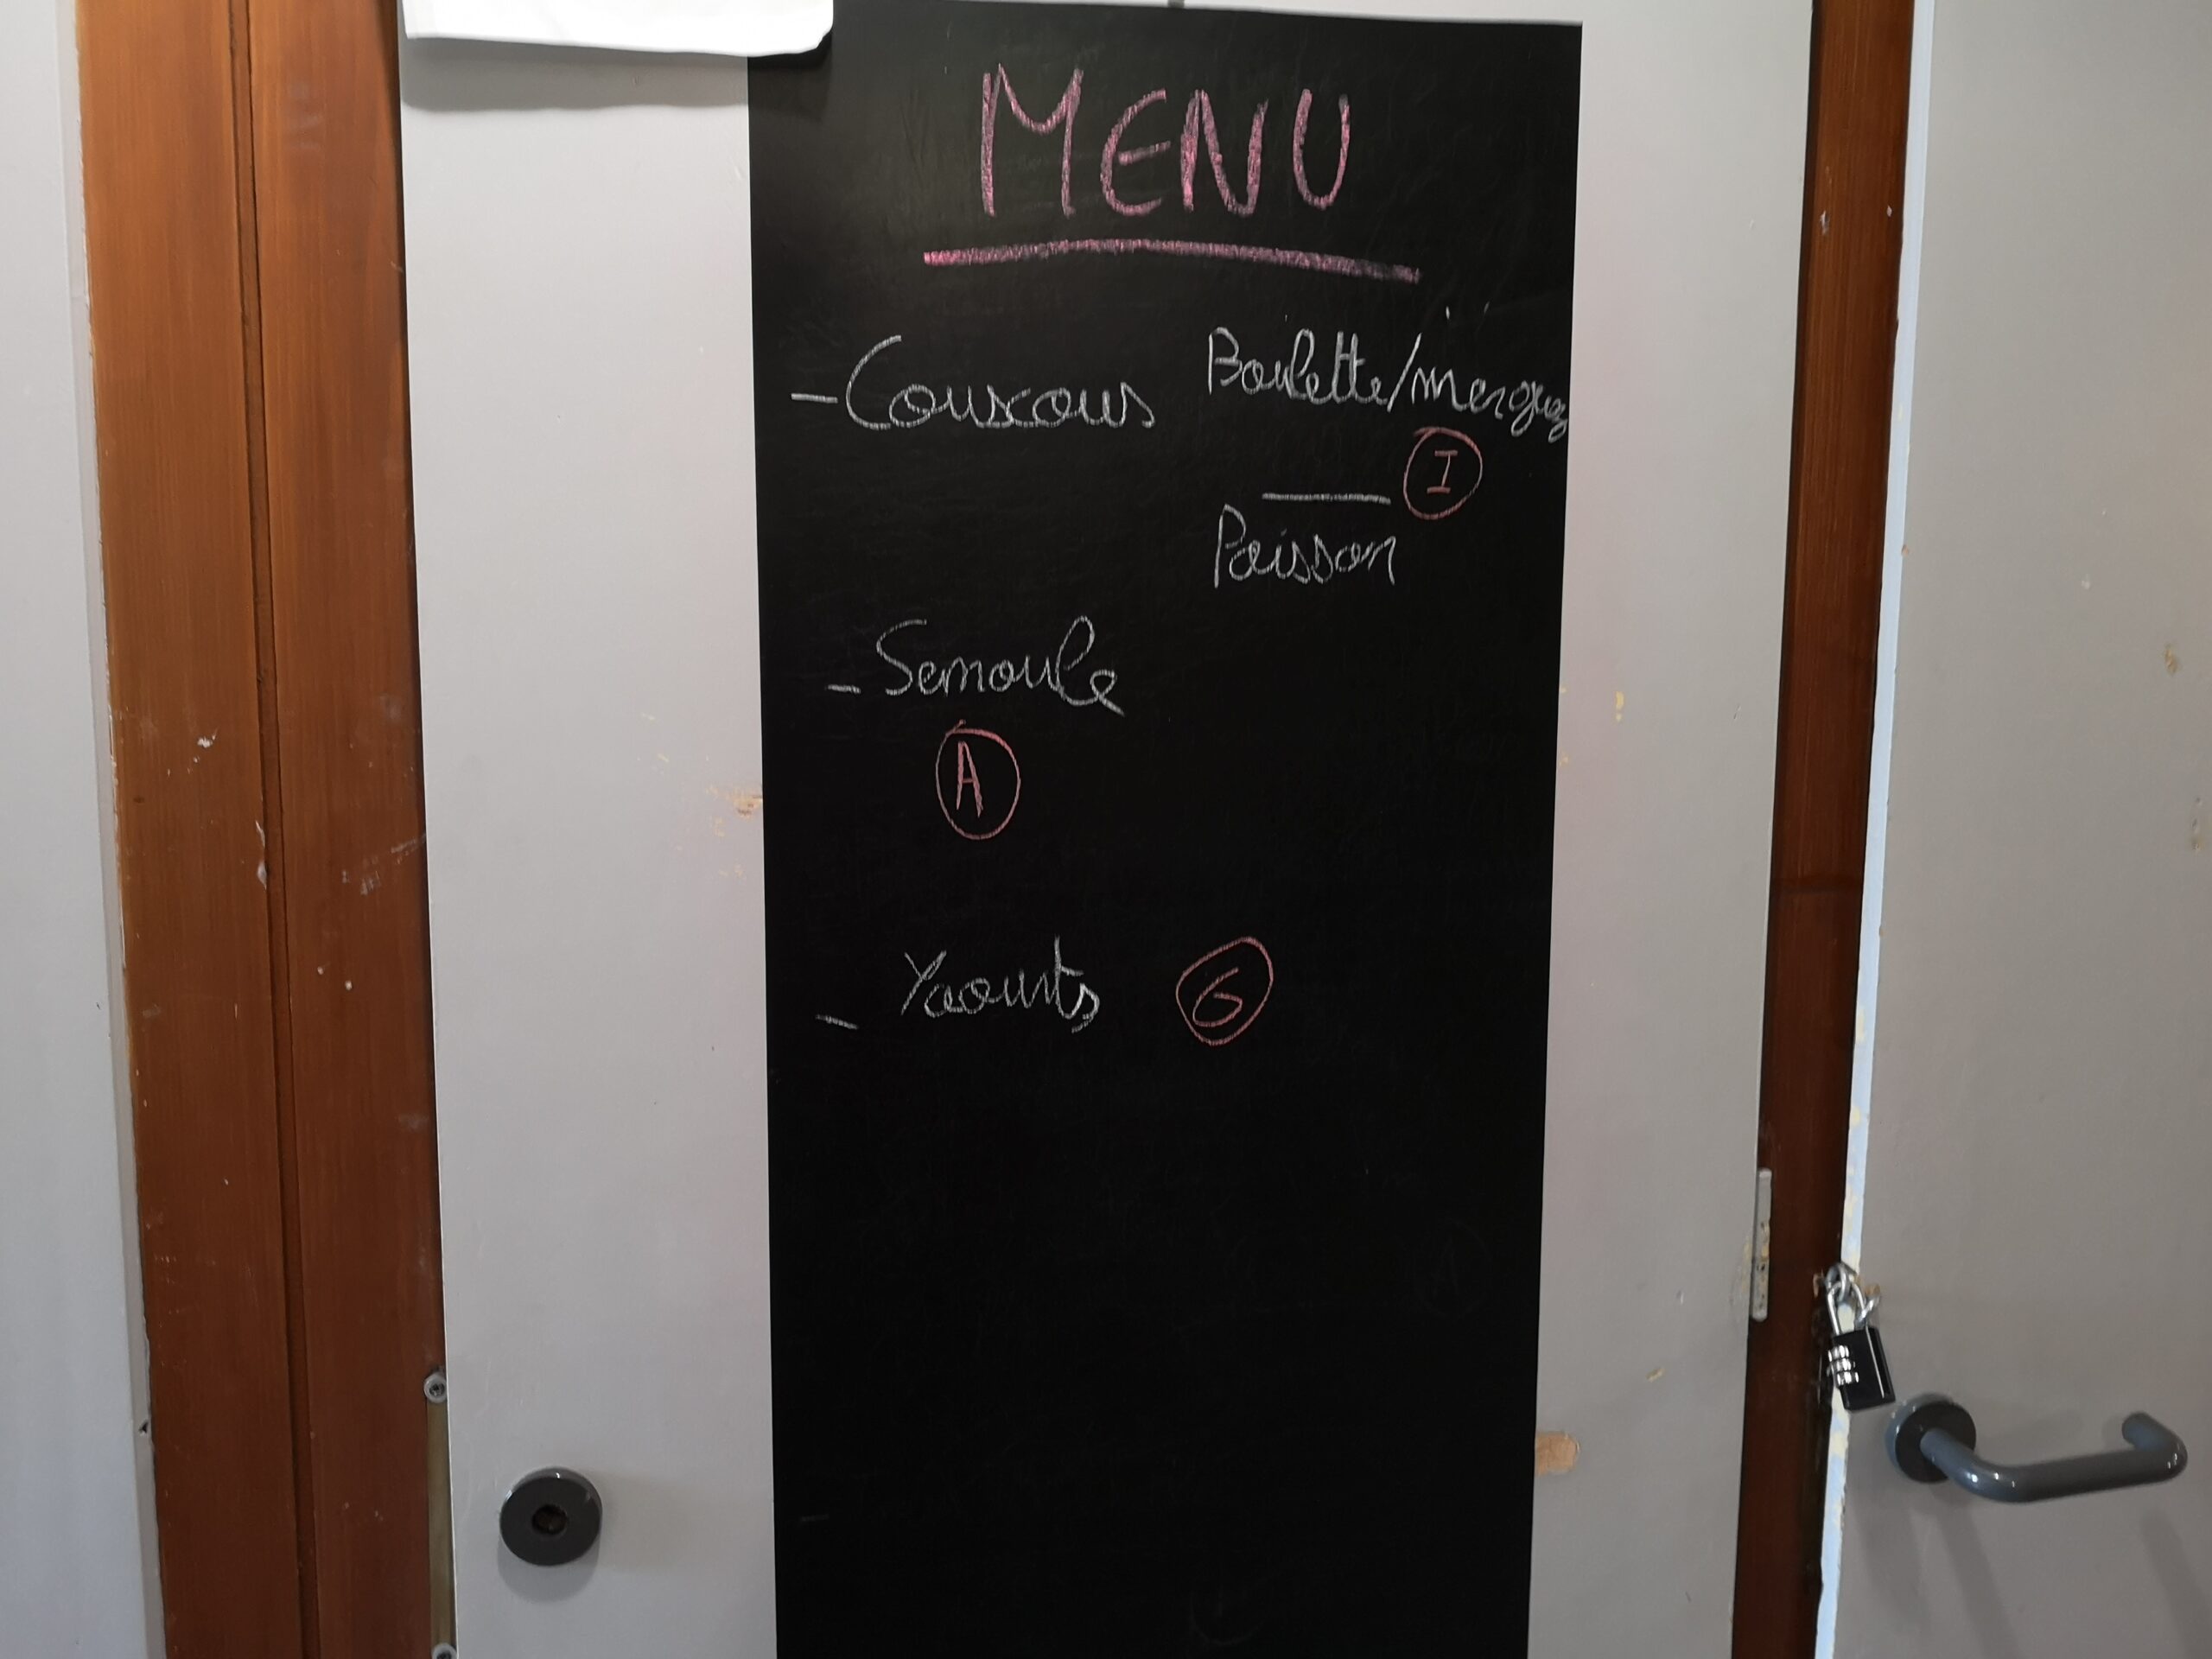 MENU
- Couscous Boulette/merguez
I
Poisson
- Semoule
A
- Yaourts G